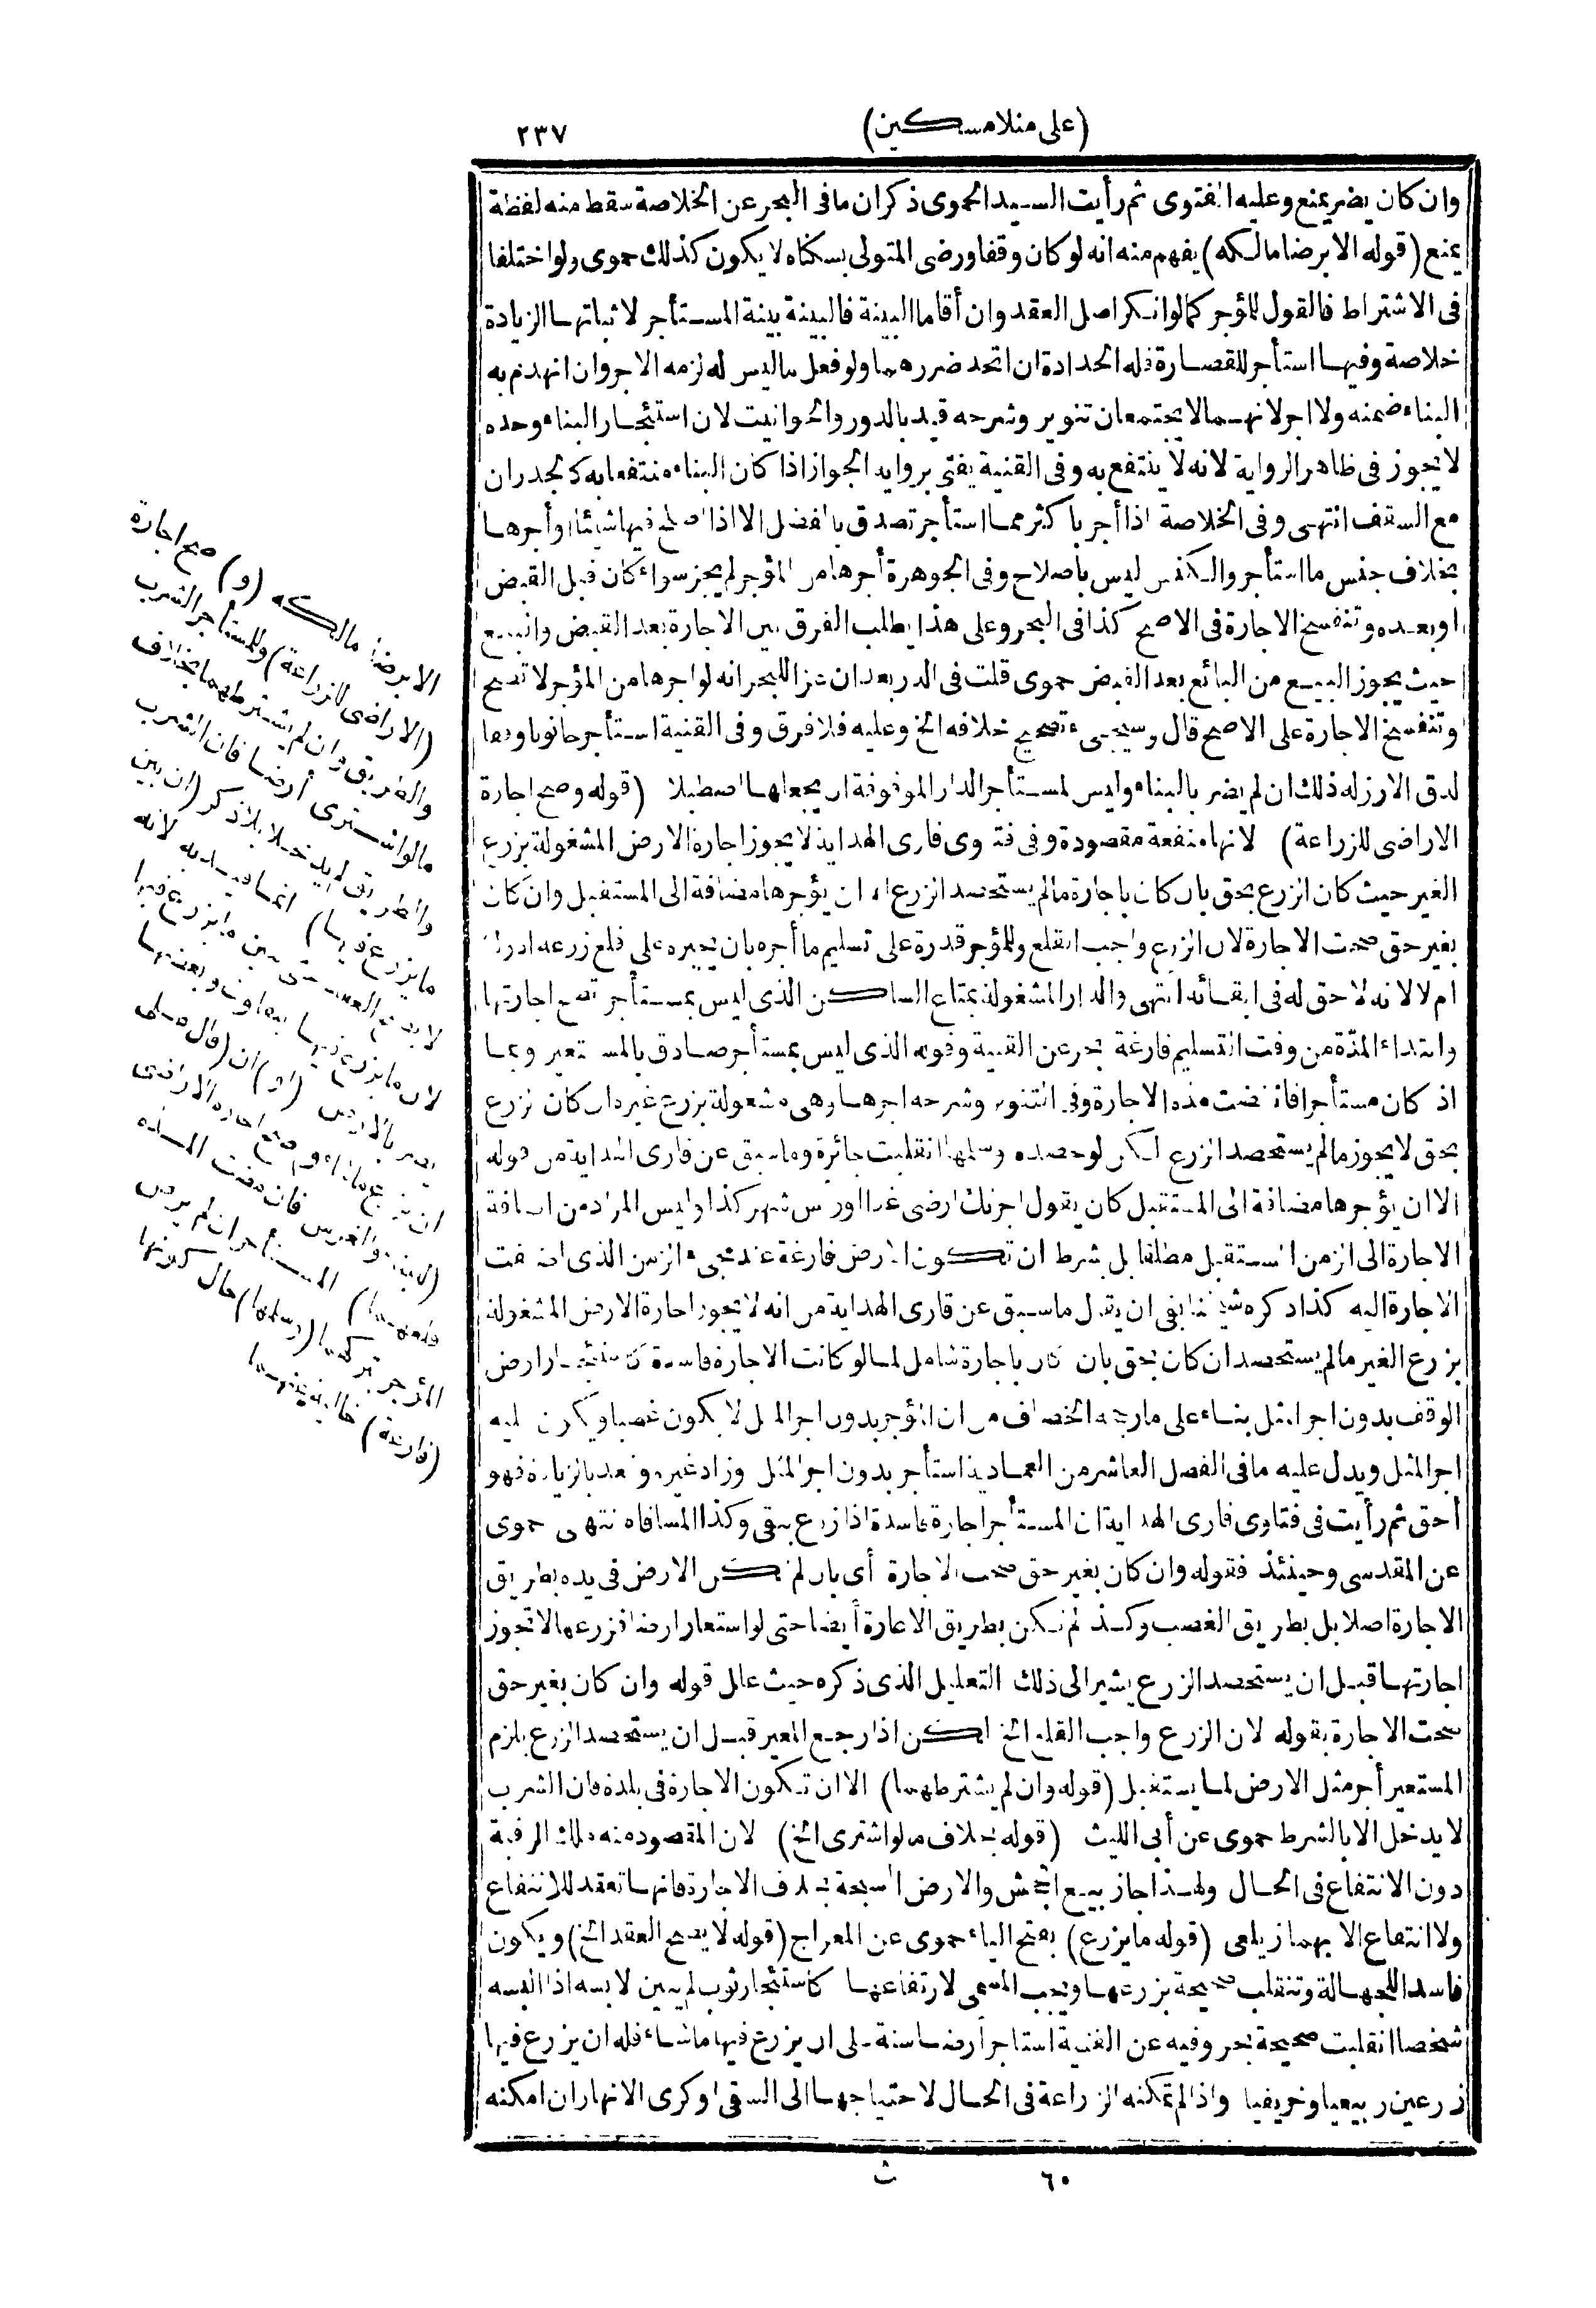 (على منلا مسكين)
٢٣٧
وان كان يضر يمنع وعليه الفتوى ثم رأيت السيد الحموى ذكر ان ما فى البحر عن الخلاصة سقط منه لفظة
يمنع (قوله الا برضا مالكه) يفهم منه انه لو كان وقفا ورضى المتولى بسكناه لا يكون كذلك حموى ولو اختلفا
فى الاشتراط فالقول للمؤجر كما لو انكر اصل العقد وان أقاما البينة فالبينة بينة المستأجر لاثباتها الزيادة
خلاصة وفيها استأجر للقصارة فله الحدادة ان اتحد ضررهما ولو فعل ما ليس له لزمه الاجر وان انهدم به
البناء ضمنه ولا اجر لانهما لا يجتمعان تنوير وشرحه قيد بالدور والحوانيت لان استئجار البناء وحده
لا يجوز فى ظاهر الرواية لانه لا ينتفع به وفى القنية يفتى برواية الجواز اذا كان البناء منتفعا به كالجدران
مع السقف انتهى وفى الخلاصة اذا أجر باكثر مما استأجر تصدق بالفضل الا اذا اصلح فيها شيئا او أجرها
بخلاف جنس ما استأجر والكنس ليس باصلاح وفى الجوهرة أجرها من المؤجر لم يجز سواء كان قبل القبض
او بعده وتنفسخ الاجارة فى الاصح كذا فى البحر وعلى هذا يطلب الفرق بين الاجارة بعد القبض والبيع
حيث يجوز البيع من البائع بعد القبض حموى قلت فى الدر بعد ان عزا للبحر انه لو اجرها من المؤجر لا تصح
وتنفسخ الاجارة على الاصح قال وسيجىء تصحيح خلافه الخ وعليه فلا فرق وفى القنية استأجر حانوتا وقفا
لدق الارز له ذلك ان لم يضر بالبناء وليس لمستأجر الدار الموقوفة ان يجعلها اصطبلا (قوله وصح اجارة
الاراضى للزراعة) لانها منفعة مقصودة وفى فتاوى قارى الهداية لا يجوز اجارة الارض المشغولة بزرع
الغير حيث كان الزرع بحق بان كان باجارة ما لم يستحصد الزرع الا ان يؤجرها مضافة الى المستقبل وان كان
بغير حق صحت الاجارة لان الزرع واجب القلع وللمؤجر قدرة على تسليم ما أجره بان يجبره على قلع زرعه ادرك
ام لا لانه لا حق له فى ابقائه انتهى والدار المشغولة بمتاع الساكن الذى ليس بمستأجر تصح اجارتها
وابتداء المدّة من وقت التسليم فارغة بحر عن القنية وقوله الذى ليس بمستأجر صادق بالمستعير وبما
اذا كان مستأجرا فانقضت مدة الاجارة وفى التنوير وشرحه اجرها وهى مشغولة بزرع غيره ان كان الزرع
بحق لا يجوز ما لم يستحصد الزرع لكن لو حصده وسلمها انقلبت جائزة وما سبق عن قارى الهداية من قوله
الا ان يؤجرها مضافة الى المستقبل كان يقول اجرتك ارضى غدا او رأس شهر كذا وليس المراد من اضافة
الاجارة الى الزمن المستقبل مطلقا بل بشرط ان تكون الارض فارغة عند مجىء الزمن الذى اضيفت
الاجارة اليه كذا ذكره شيخنا بقى ان يقال ما سبق عن قارى الهداية من انه لا يجوز اجارة الارض المشغولة
بزرع الغير ما لم يستحصد ان كان بحق بان كان باجارة شامل لما لو كانت الاجارة فاسدة كاستئجار ارض
الوقف بدون اجر المثل بناء على ما رجحه الخصاف من ان المؤجر بدون اجر المثل لا يكون غصبا ويكون عليه
اجر المثل ويدل عليه ما فى الفصل العاشر من العمادية استأجر بدون اجر المثل وزاد غيره وقعد بالزيادة فهو
أحق ثم رأيت فى فتاوى قارى الهداية ان المستأجر اجارة فاسدة اذا زرع يبقى وكذا المساقاة انتهى حموى
عن المقدسى وحينئذ فقوله وان كان بغير حق صحت الاجارة أى بان لم تكن الارض فى يده بطريق
الاجارة اصلا بل بطريق الغصب وكذا لم تكن بطريق الاعارة أيضا حتى لو استعار ارضا فزرعها لا تجوز
اجارتها قبل ان يستحصد الزرع يشير الى ذلك التعليل الذى ذكره حيث علل قوله وان كان بغير حق
صحت الاجارة بقوله لان الزرع واجب القلع الخ لكن اذا رجع المعير قبل ان يستحصد الزرع يلزم
المستعير أجر مثل الارض لما يستقبل (قوله وان لم يشترطهما) الا ان تكون الاجارة فى بلدة فان الشرب
لا يدخل الا بالشرط حموى عن أبى الليث (قوله بخلاف ما لو اشترى الخ) لان المقصود منه ملك الرقبة
دون الانتفاع فى الحال ولهذا جاز بيع الجحش والارض السبخة بخلاف الاجارة فانها تعقد للانتفاع
ولا انتفاع الا بهما زيلعى (قوله ما يزرع) بفتح الياء حموى عن المعراج (قوله لا يصح العقد الخ) ويكون
فاسدا للجهالة وتنقلب صحيحة بزرعها ويجب المسمى لارتفاعها كاستئجار ثوب لم يبين لابسه اذا البسه
شخصا انقلبت صحيحة بحر وفيه عن القنية استاجر أرضا سنة على ان يزرع فيها ما شاء فله ان يزرع فيها
زرعين ربيعيا وخريفيا واذا لم تمكنه الزراعة فى الحال لاحتياجها الى السقى او كرى الانهار ان امكنه
الا برضا مالكه (و) صح اجارة
(الاراضى للزراعة) وللمستأجر الشرب
والطريق وان لم يشترطهما بخلاف
ما لو اشترى أرضا فان الشرب
والطريق لا يدخلا بلا ذكر (ان بين
ما يزرع فيها) انما قيد به لانه
لا يصح العقد حتى يبين ما يزرع فيها
لان ما يزرع فيها يتفاوت وبعضها
يضر بالارض (او) ان (قال على
ان يزرع ما شاء و) صح اجارة الاراضى
(للبناء والغرس فان مضت المدة
قلعهما) المستأجر ان لم يرض
المؤجر بتركهما (وسلمها) حال كونها
(فارغة) خالية عنهما
٦٠
ث